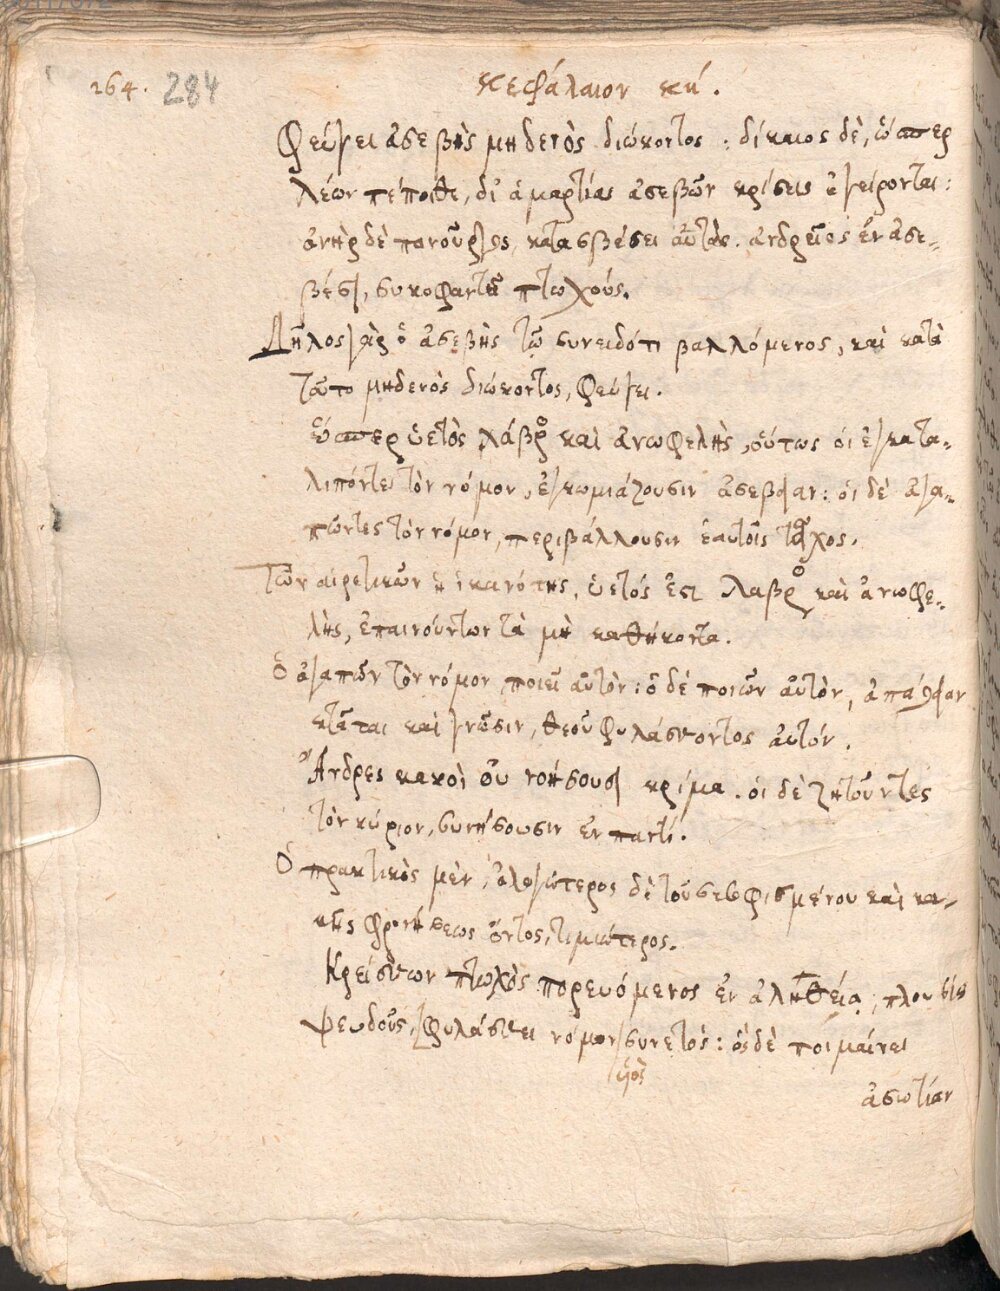 264. 284
κεφάλαιον κή.
Φεύγει ἀσεβὴς μηδενὸς διώκοντος : δίκαιος δὲ, ὥσπερ
λέων πέποιθε, δι' ἁμαρτίας ἀσεβῶν κρίσεις ἐγείρονται :
ἀνὴρ δὲ πανοῦργος, κατασβέσει αὐτάς. ἀνδρεῖος ἐν ἀσε-
βέσι, συκοφαντεῖ πτωχούς.
Δῆλος γὰρ ὁ ἀσεβὴς τῷ συνειδότι βαλλόμενος, καὶ κατὰ
τοῦτο μηδενὸς διώκοντος, φεύγει.
ὥσπερ ὑετὸς λάβρος καὶ ἀνωφελὴς, οὕτως οἱ ἐγκατα-
λιπόντες τὸν νόμον, ἐγκωμιάζουσιν ἀσέβειαν : οἱ δὲ ἀγα-
πῶντες τὸν νόμον, περιβάλλουσιν ἑαυτοῖς τεῖχος.
Τῶν αἱρετικῶν ἡ ἱκανότης, ὑετός ἐστι λάβρος καὶ ἀνωφε-
λὴς, ἐπαινούντων τὰ μὴ καθήκοντα.
Ὁ ἀγαπῶν τὸν νόμον, ποιεῖ αὐτὸν : ὁ δὲ ποιῶν αὐτὸν,
κτᾶται καὶ γνῶσιν, θεοῦ φυλάσσοντος αὐτόν.
Ἄνδρες κακοὶ οὐ νοήσουσι κρίμα. οἱ δὲ ζητοῦντες
τὸν κύριον, συνήσωσιν ἐν παντί.
Ὁ πρακτικὸς μὲν, ἀλογώτερος δὲ τοῦ σεσοφισμένου καὶ κα-
κῆς φρονήσεως ὄντος, τιμιώτερος.
Κρείσσων πτωχὸς πορευόμενος ἐν ἀληθείᾳ, πλουσίου
ψευδοῦς, φυλάσσει νόμον συνετός : ὁς δὲ ποιμαίνει
υἱὸς
ἀσωτίαν